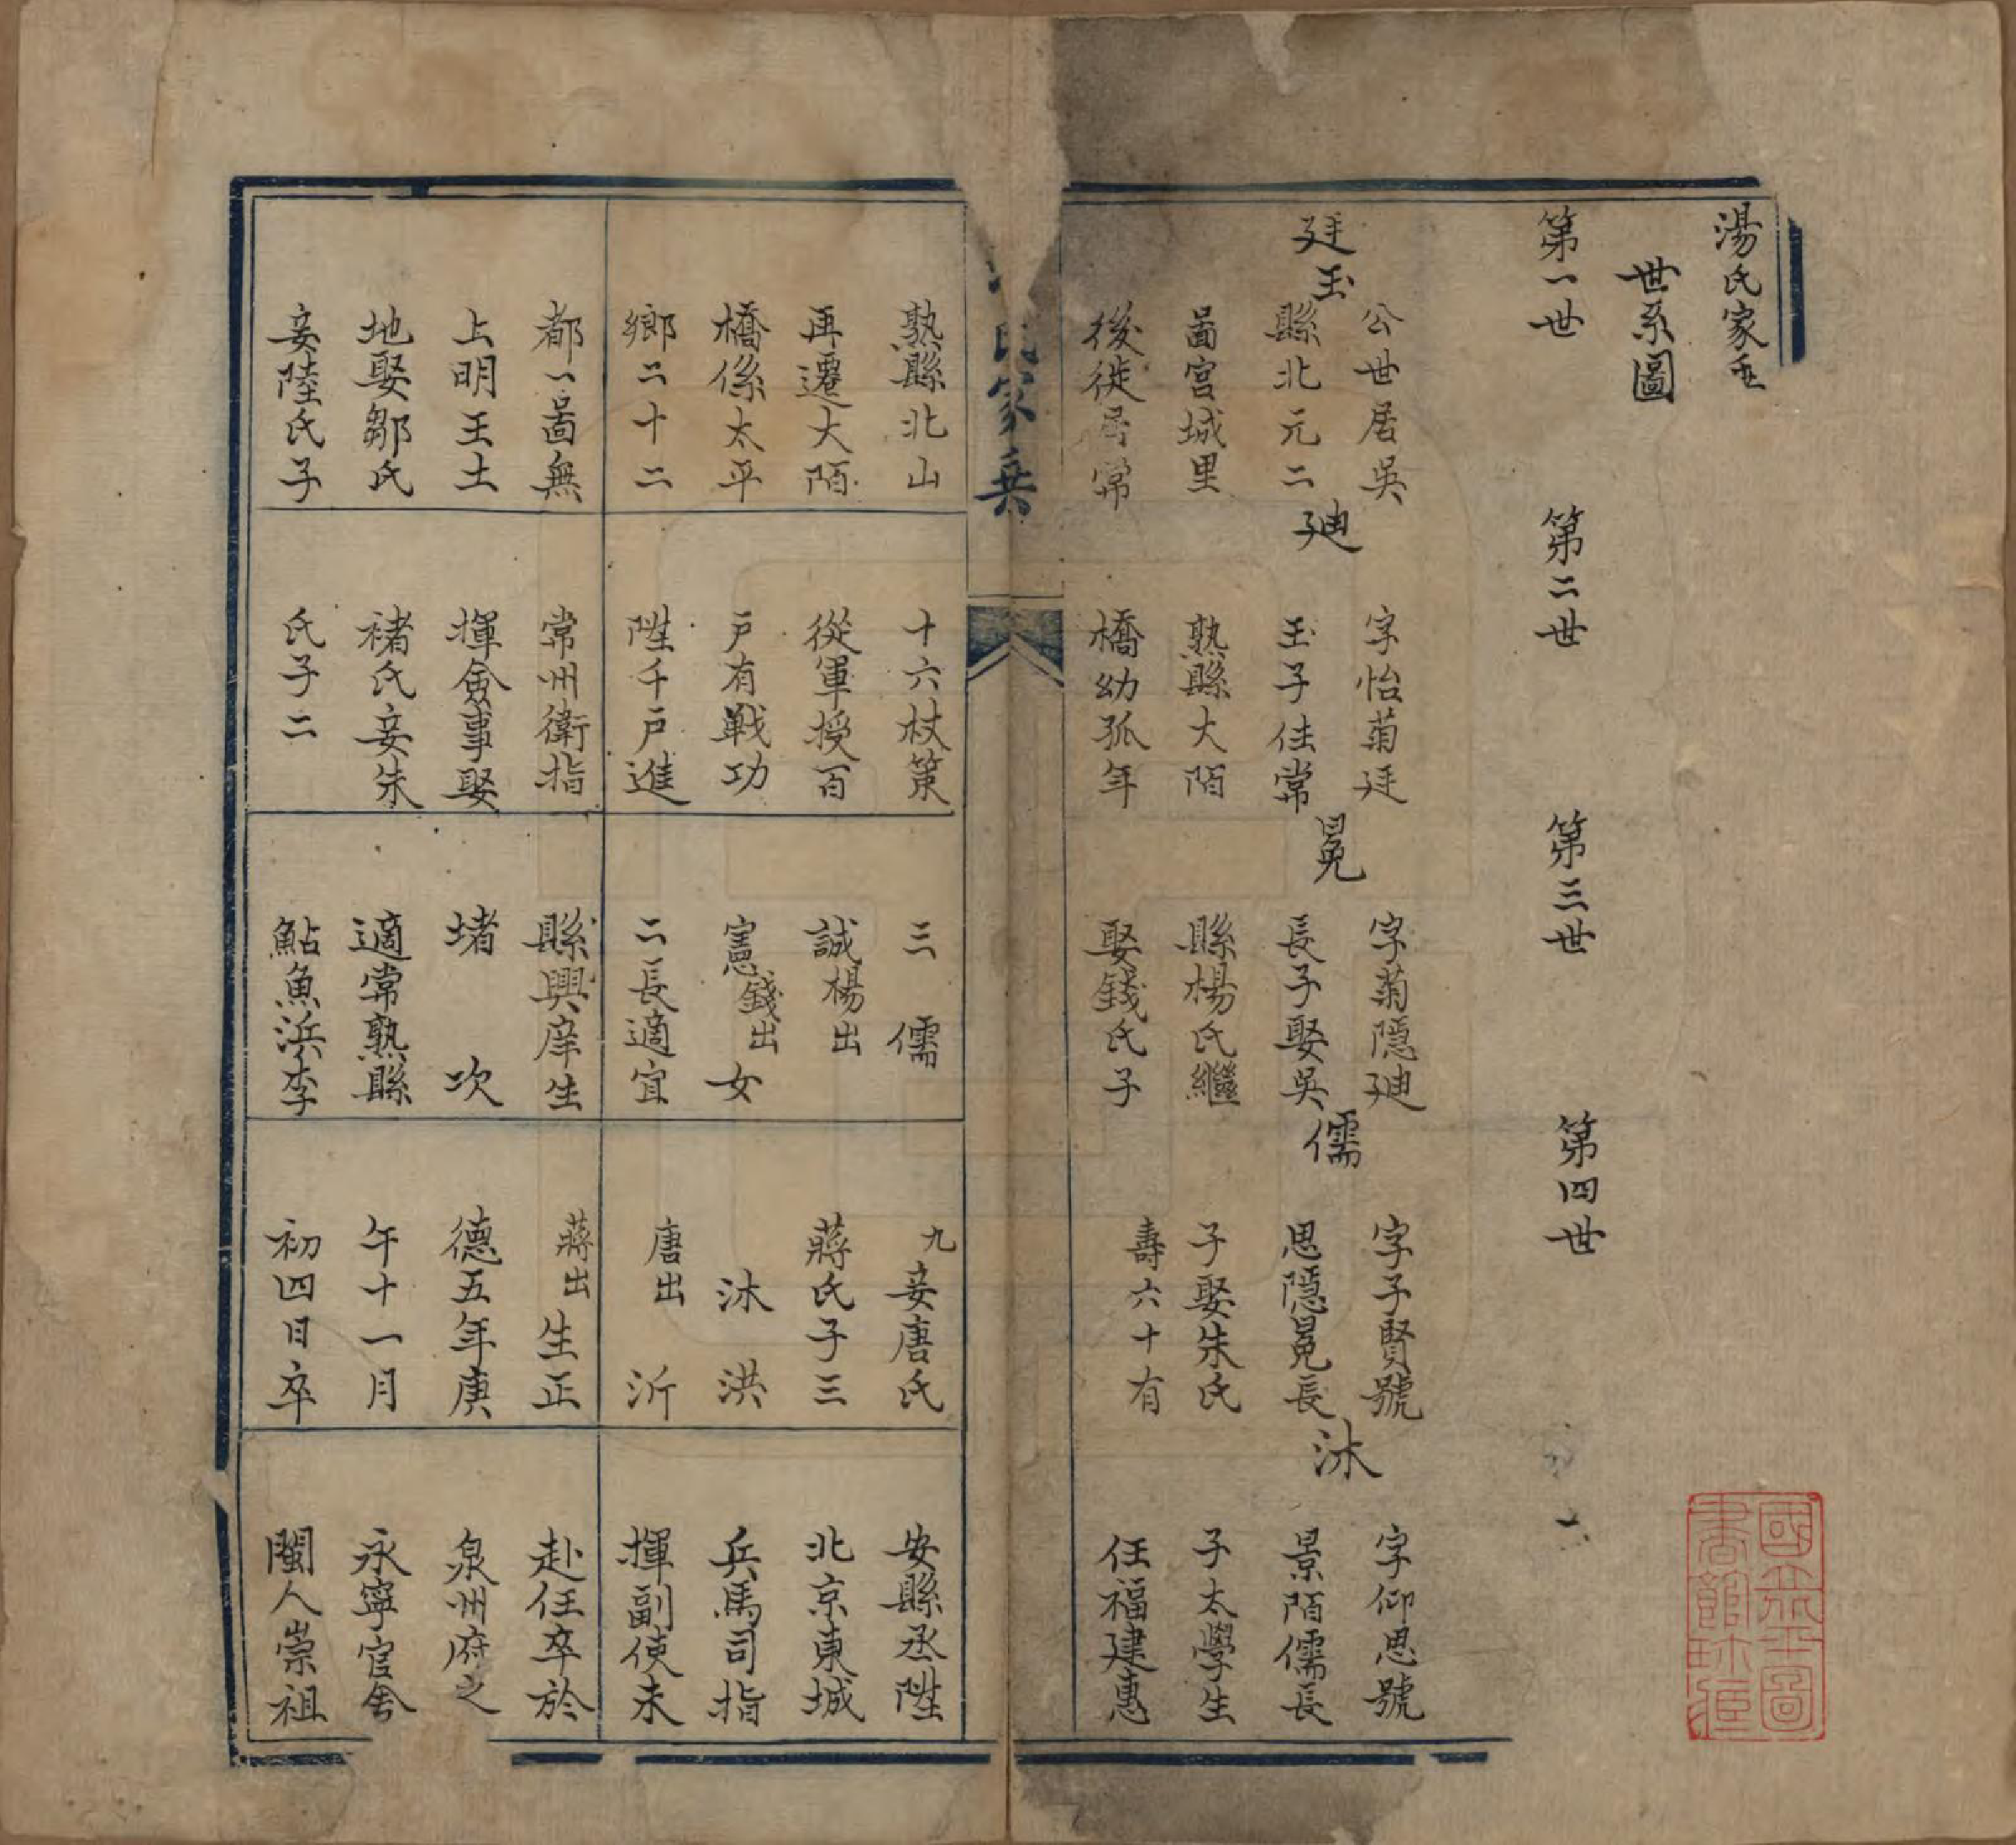 湯氏家乘
世系圖
第一世
第二世
第三世
第四世
廷玉
公世居吳
縣北元二
啚宮城里
後徙居常
熟縣北山
再遷大陌
橋係太平
鄉二十二
都一啚無
上明王土
地娶鄒氏
妾陸氏子
廸
字怡菊廷
玉子住常
熟縣大陌
橋幼孤年
十六杖策
從軍授百
戶有戰功
陞千戶進
常州衛指
揮僉事娶
褚氏妾朱
氏子二
冕
字菊隱廸
長子娶吳
縣楊氏繼
娶錢氏子
三 儒
誠楊出
憲錢出 女
二長適宜
縣興庠生
堵 次
適常熟縣
鮎魚浜李
儒
字子賢號
思隱冕長
子娶朱氏
壽六十有
九妾唐氏
蔣氏子三
沐 洪
唐出 沂
蔣出生正
德五年庚
午十一月
初四日卒
沐
字仰思號
景陌儒長
子太學生
任福建惠
安縣丞陞
北京東城
兵馬司指
揮副使未
赴任卒於
泉州府之
永寧官舍
閩人崇祖
氏家乘
國立北平圖
書館收藏